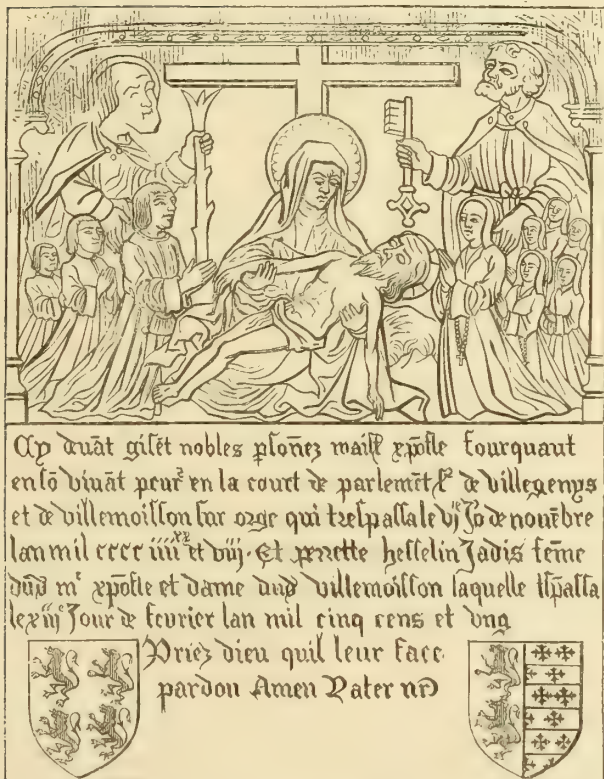 Cy devāt gisēt nobles psōnez maistʳ xpōfle fourquaut
en sō vivāt pcurʳ en la court de parlemēt sʳ de villegenys
et de villemoisson sur orge qui trespassa le vjᵉ Jō de novēbre
lan mil cccc iiiiˣˣ et viij · Et perrette hesselin Jadis fēme
dud mᵉ xpōfle et dame dud villemoisson laquelle tspassa
le xiijᵉ Jour de fevrier lan mil cinq cens et ung
Priez dieu quil leur face
pardon Amen Pater nr̄